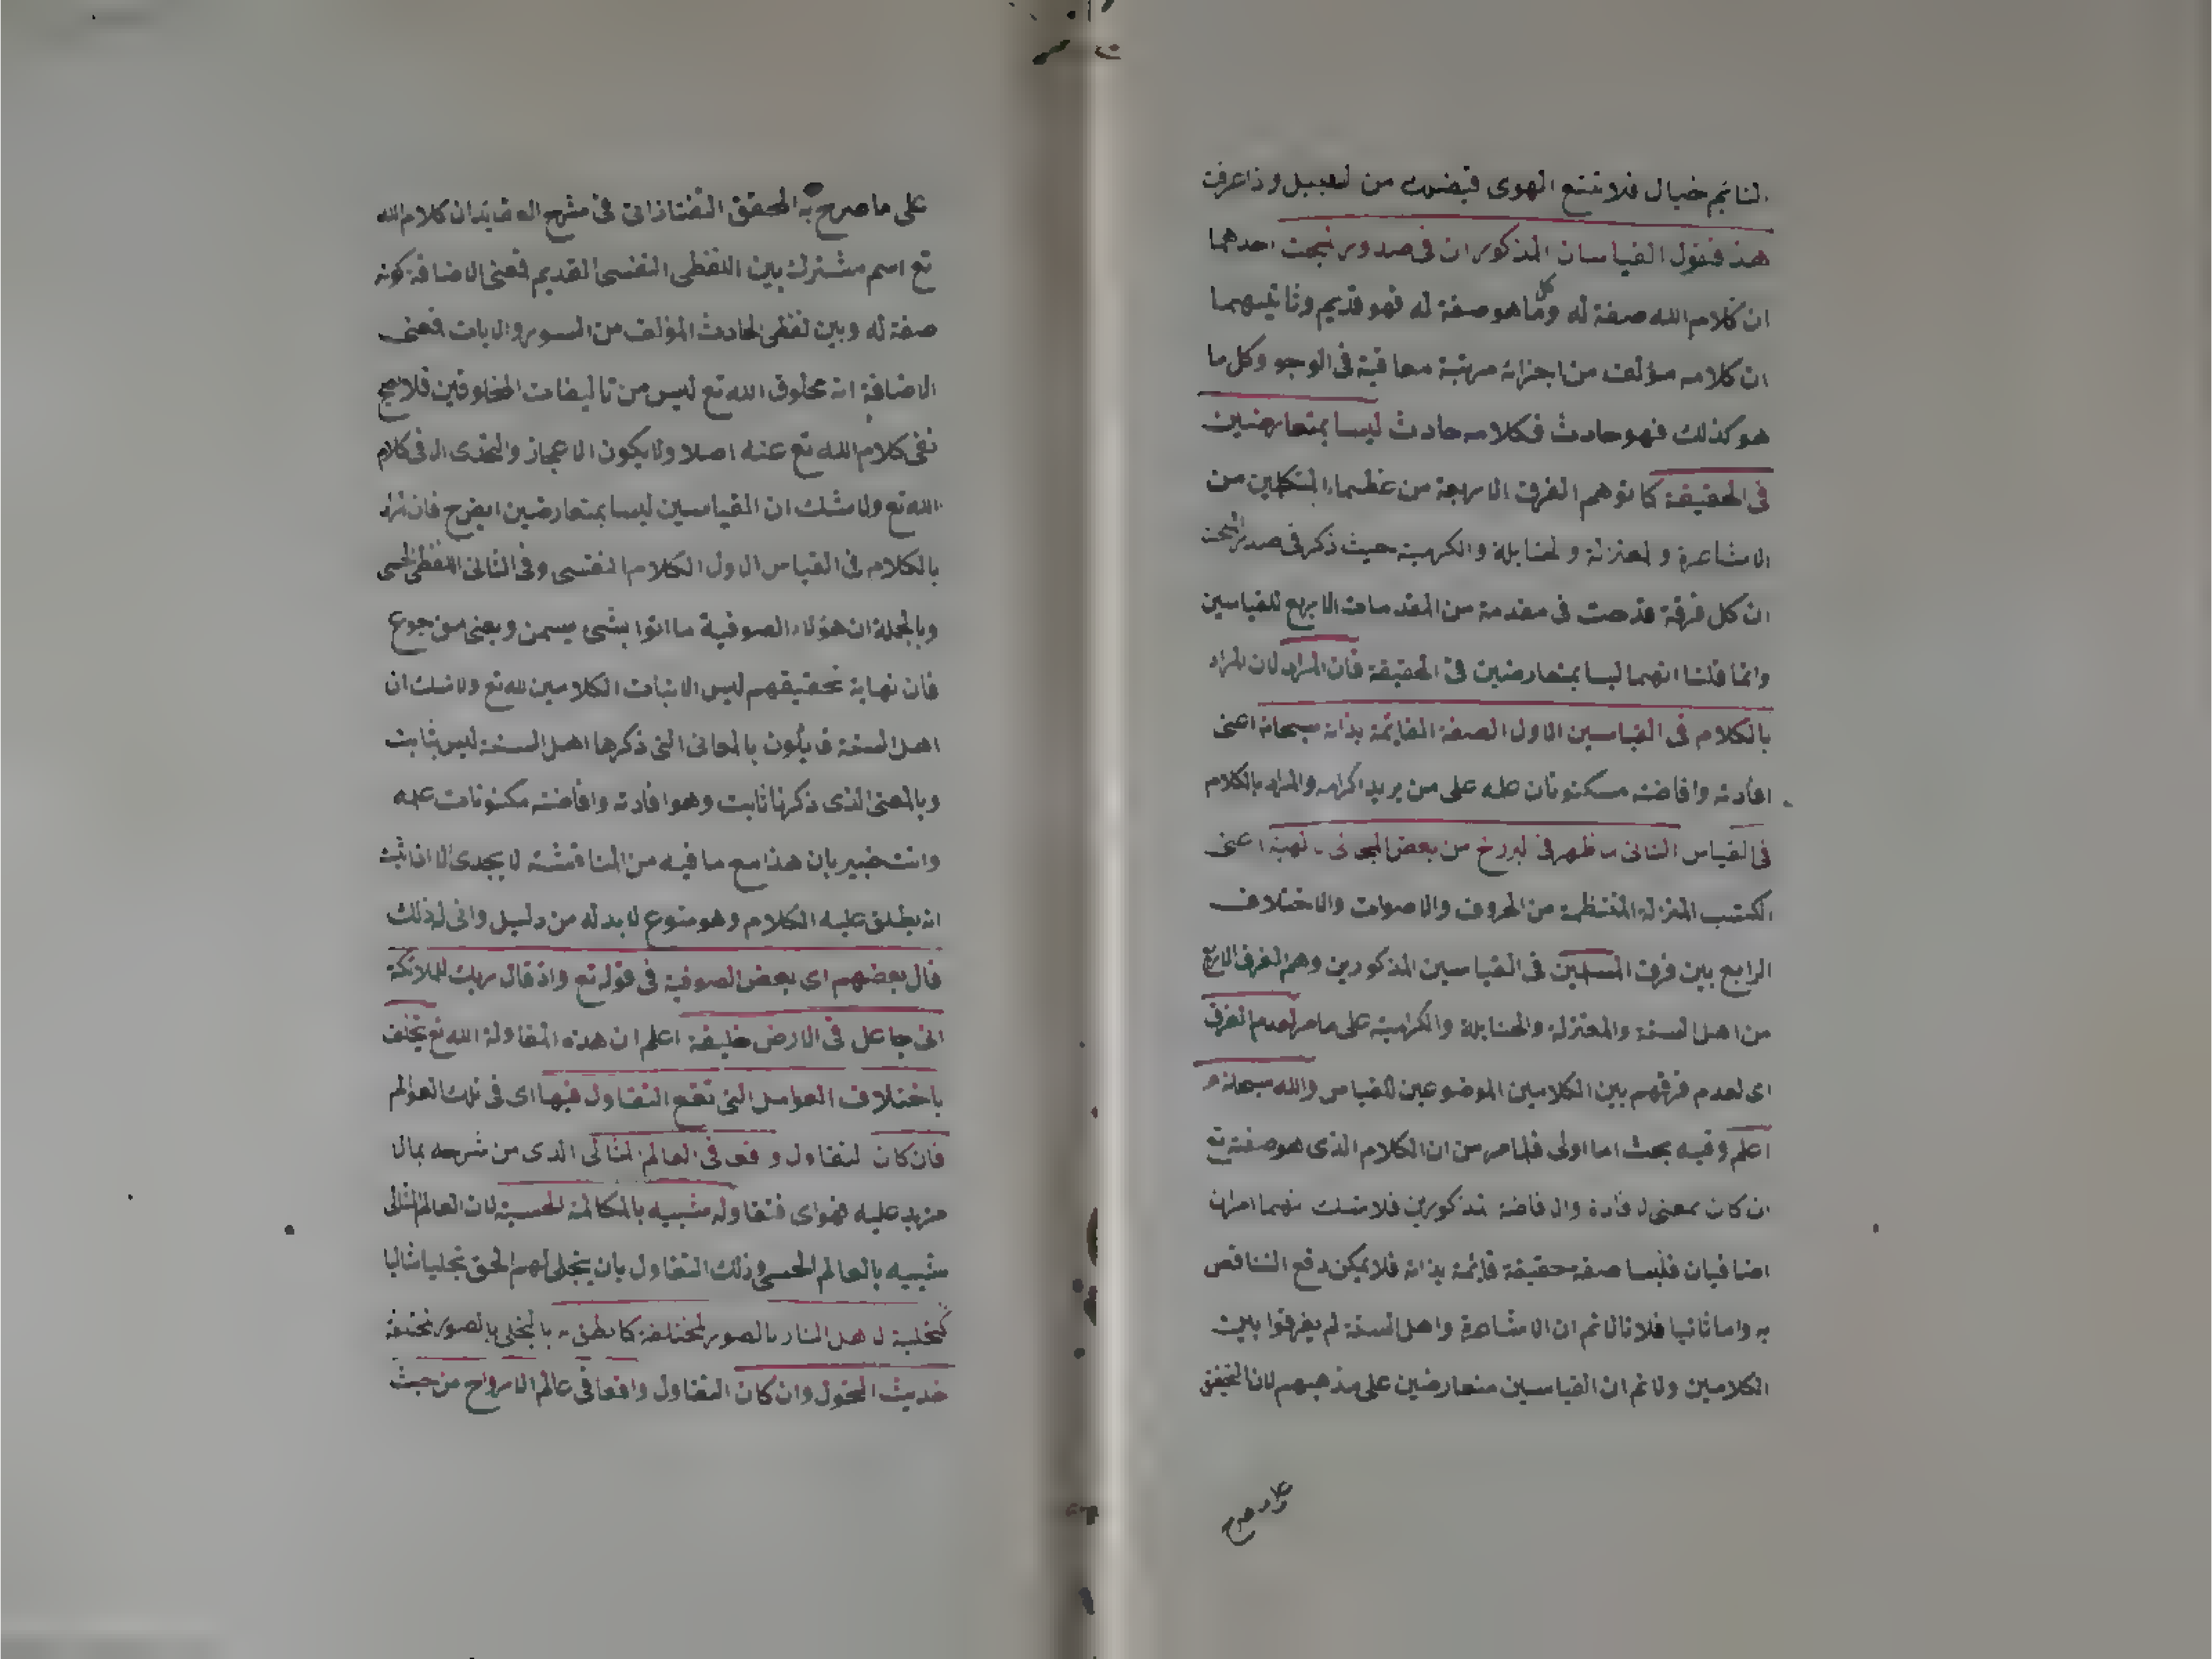 النائم خيال فلا تتبع الهوى فيضلك من السبيل واذا عرفت
هذا فنقول القياسان المذكوران في صدر المبحث احدهما
ان كلام الله صفة له وكل ما هو صفة له فهو قديم وثانيهما
ان كلامه مؤلف من اجزائه مرتبة معاقبة في الوجو وكل ما
هو كذلك فهو حادث فكلامه حادث ليسا بمتعارضين
في الحقيقة كما توهم الفرق الاربعة من عظماء المتكلمين من
الاشاعرة والمعتزلة والحنابلة والكرمية حيث ذكر في صدر المبحث
ان كل فرقة قدحت في مقدمة من المقدمات الاربع للقياسين
وانما قلنا انهما ليسا بمتعارضين في الحقيقة فان المراد لان المراد
بالكلام في القياسين الاول الصفة القائمة بذاته سبحانه اعنى
افادته وافاضته مسكنونات علمه على من يريد اكرامه والمراد بالكلام
في القياس الثانى ما ظهر في البرزخ من بعض المجالى الالهية اعنى
الكتب المنزلة المنتظمة من الحروف والاصوات والاختلاف
الرابع بين فرق المسلمين في القياسين المذكورين وهم الفرق الاربع
من اهل السنة والمعتزلة والحنابلة والكرامية على ما مر لعدم الفرق
اى لعدم فرقهم بين الكلامين الموضوعين للقياس والله سبحانه
اعلم وفيه بحث اما اولى فلما مر من ان الكلام الذى هو صفته تع
ان كان بمعنى الافادة والافاضة المذكورين فلا شك انهما امران
اضافيان فليسا صفة حقيقة قائمة بذاته فلا يمكن دفع التناقض
به واما ثانيا فلانا لانم ان الاشاعرة واهل السنة لم يفرقوا بين
الكلامين ولانم ان القياسين متعارضين على مذهبهم لان التحقيق
على ما صرح
على ما صرح به المحقق التفتازانى في شرح العقايد ان كلام الله
تع اسم مشترك بين اللفظى النفسى القديم فمعنى الاضافة كونه
صفة له وبين لفظى الحادث المؤلف من السور والايات فمعنى
الاضافة انه مخلوق الله تع ليس من تاليفات المخلوقين فلا يصح
نفى كلام الله تع عنه اصلا ولا يكون الاعجاز والتحدى الا في كلام
الله تع ولا شك ان القياسين ليسا بمتعارضين ايضح فان المراد
بالكلام في القياس الاول الكلام النفسى وفي الثانى اللفظى الحسى
وبالجملة ان هؤلاء الصوفية ما اتوا بشئ يسمن ويغنى من جوع
فان نهاية تحقيقهم ليس الا اثبات الكلامين لله تع ولا شك ان
اهل السنة قايلون بالمعانى التى ذكرها اهل السنة ليس بثابت
وبالمعنى الذى ذكرنا ثابت وهو افادته وافاضته مكنونات علمه
وانت خبير بان هذا مع ما فيه من المناقشة لا يجدى الا اذا ثبت
انه يطلق عليه الكلام وهو ممنوع لا بد له من دليل وانى لذلك
قال بعضهم اى بعض الصوفية في قوله تع واذ قال ربك للملائكة
انى جاعل في الارض خليفة اعلم ان هذه المقاولة الله تع تختلف
باختلاف العوالم التى تقع التقاول فيها اى في تلك العوالم
فان كان التقاول وقع في العالم المثالى الذى من شرحه بما لا
مزيد عليه فهو اى فتقاوله شبيه بالمكالمة الحسية لان العالم المثالى
شبيه بالعالم الحسى وذلك التقاول بان يتجلى لهم الحق تجليا مثاليا
كتجليه لاهل النار بالصور المختلفة كما نطق به بالتجلى بالصور مختلفة
حديث التحول وان كان التقاول واقعا في عالم الارواح من حيث